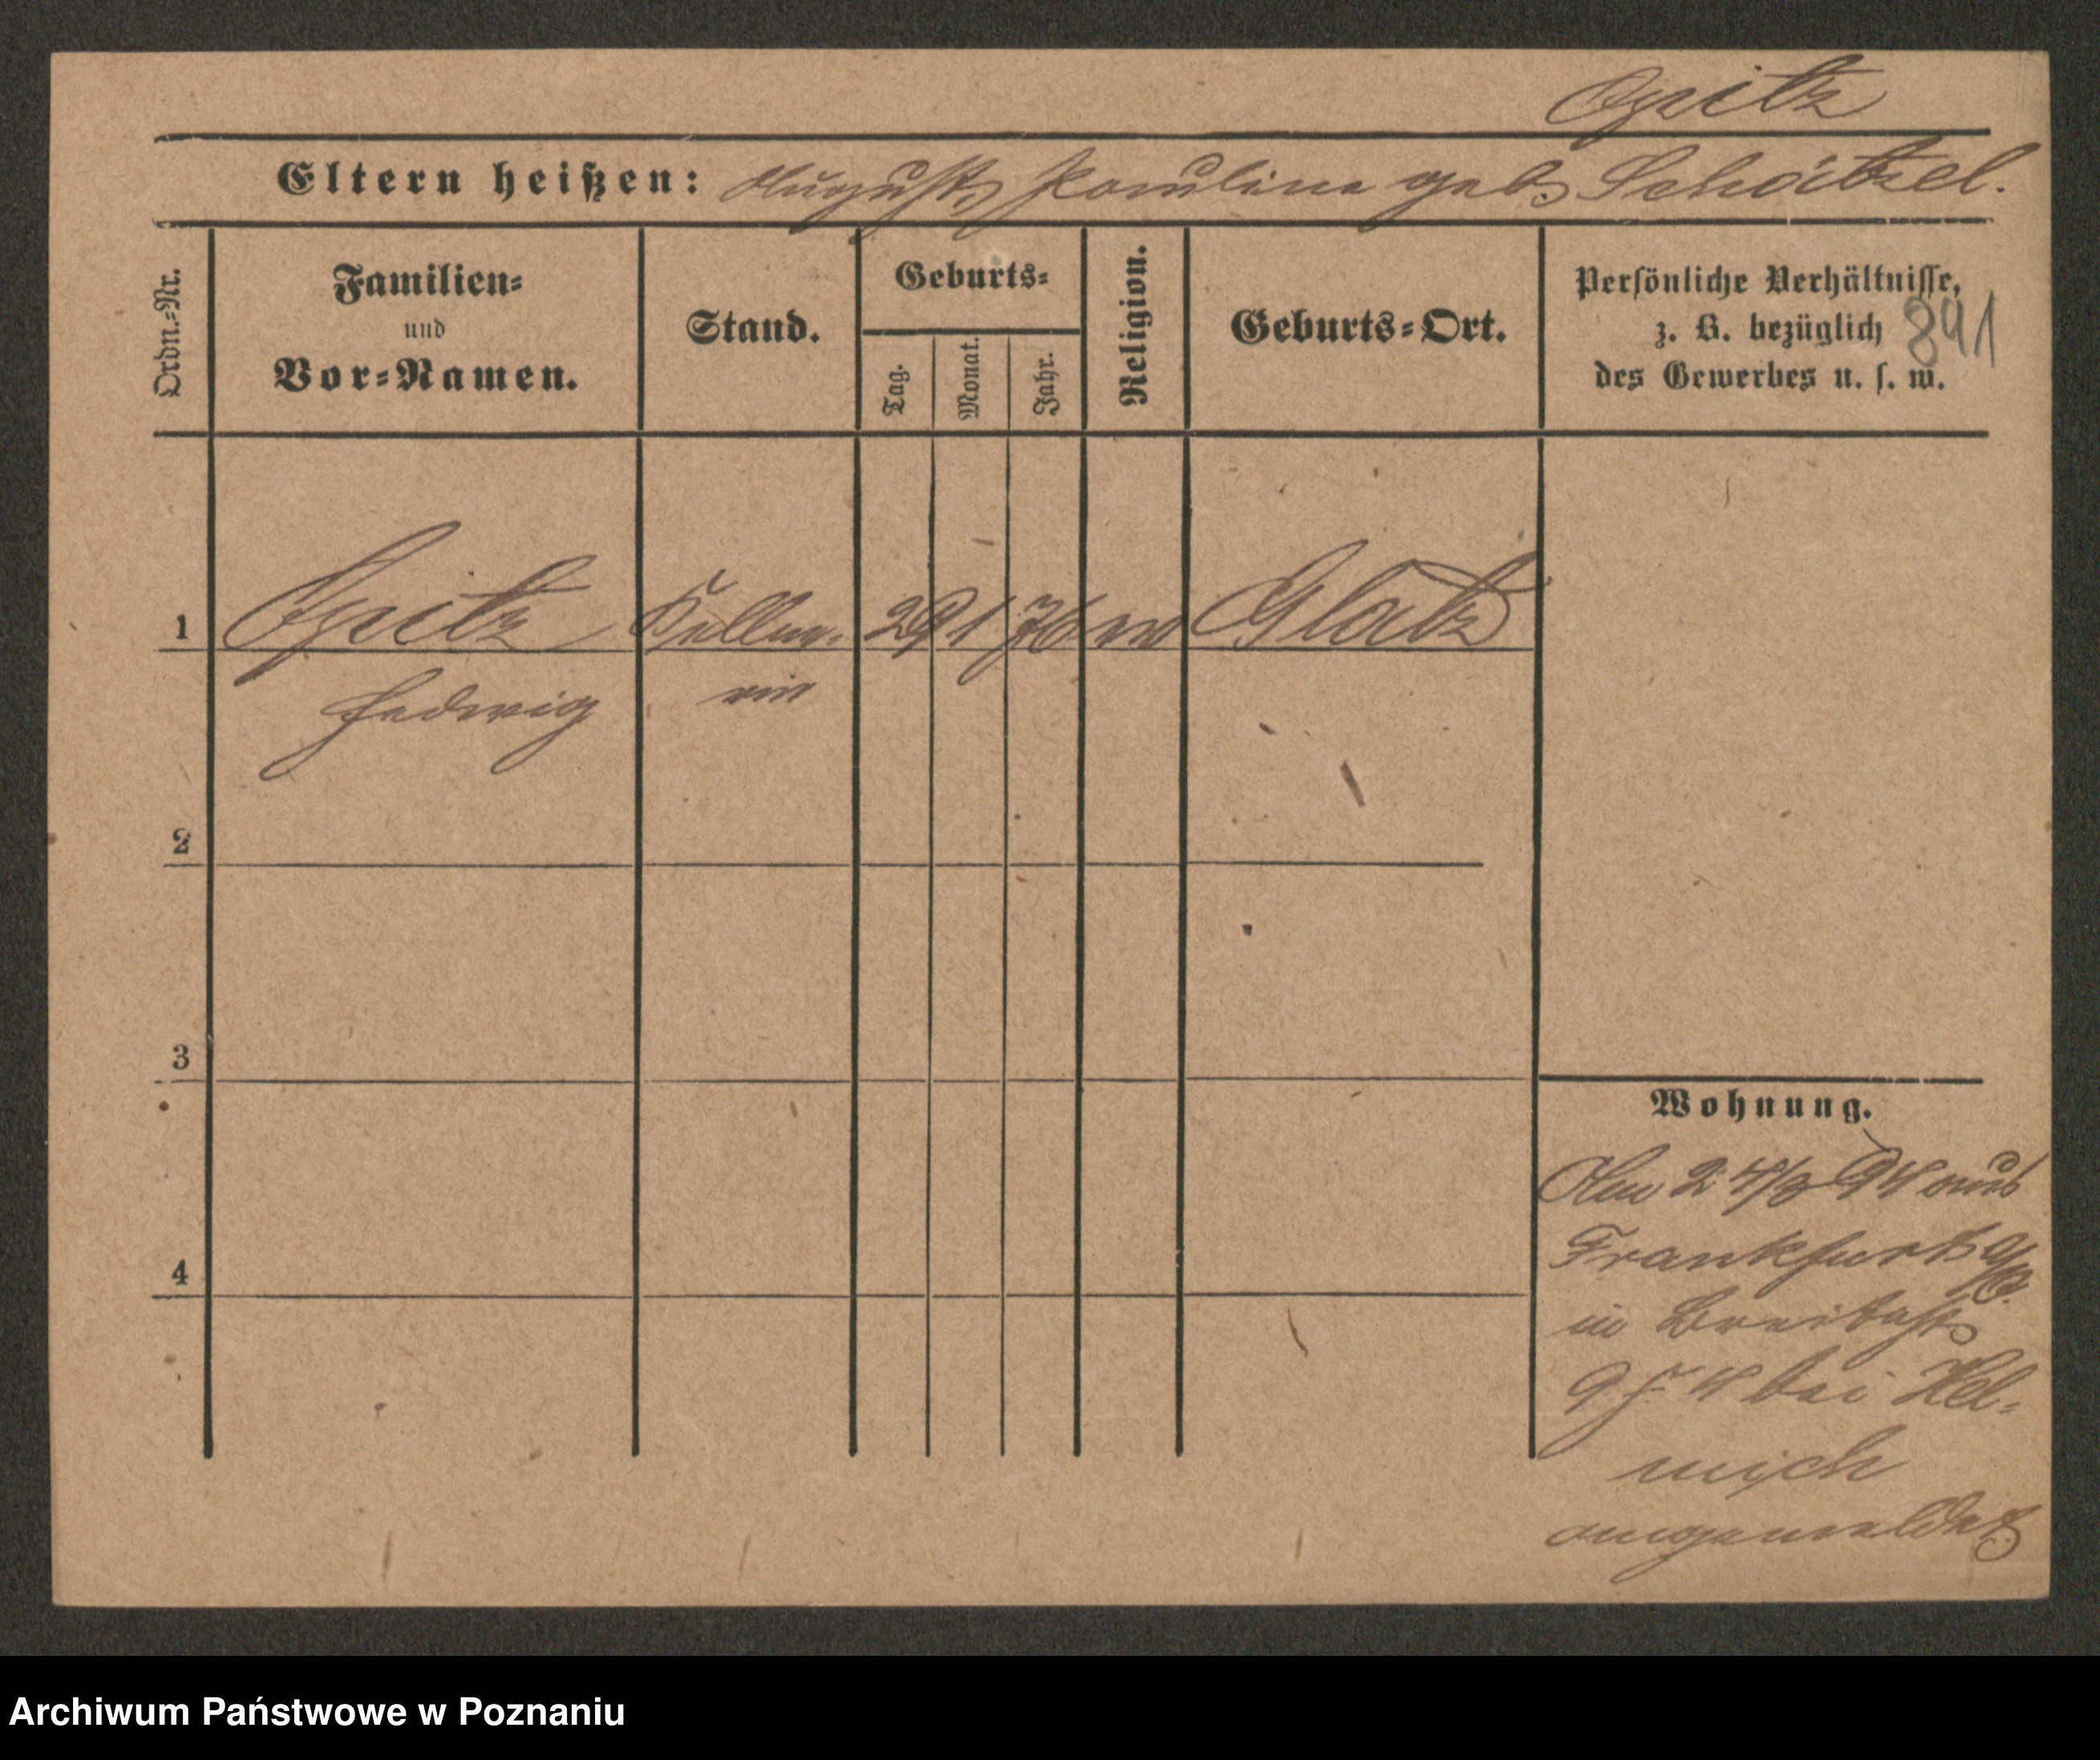 Opitz
Eltern heißen: August, Pauline geb. Schötzel.
Ordn.-Nr.
Familien-
und
Vor-Namen.
Stand.
Geburts-
Tag.
Monat.
Jahr.
Religion.
Geburts-Ort.
Persönliche Verhältnisse,
z. B. bezüglich
des Gewerbes u. s. w.
891
1 Opitz Kellne- 29 1 76 Glatz
Hedwig rin
2
3
4
Wohnung.
Am 24/3 94 aus
Frankfurt a/O.
in Breitestr
bei Hel-
mich
angemeldet
Archiwum Państwowe w Poznaniu